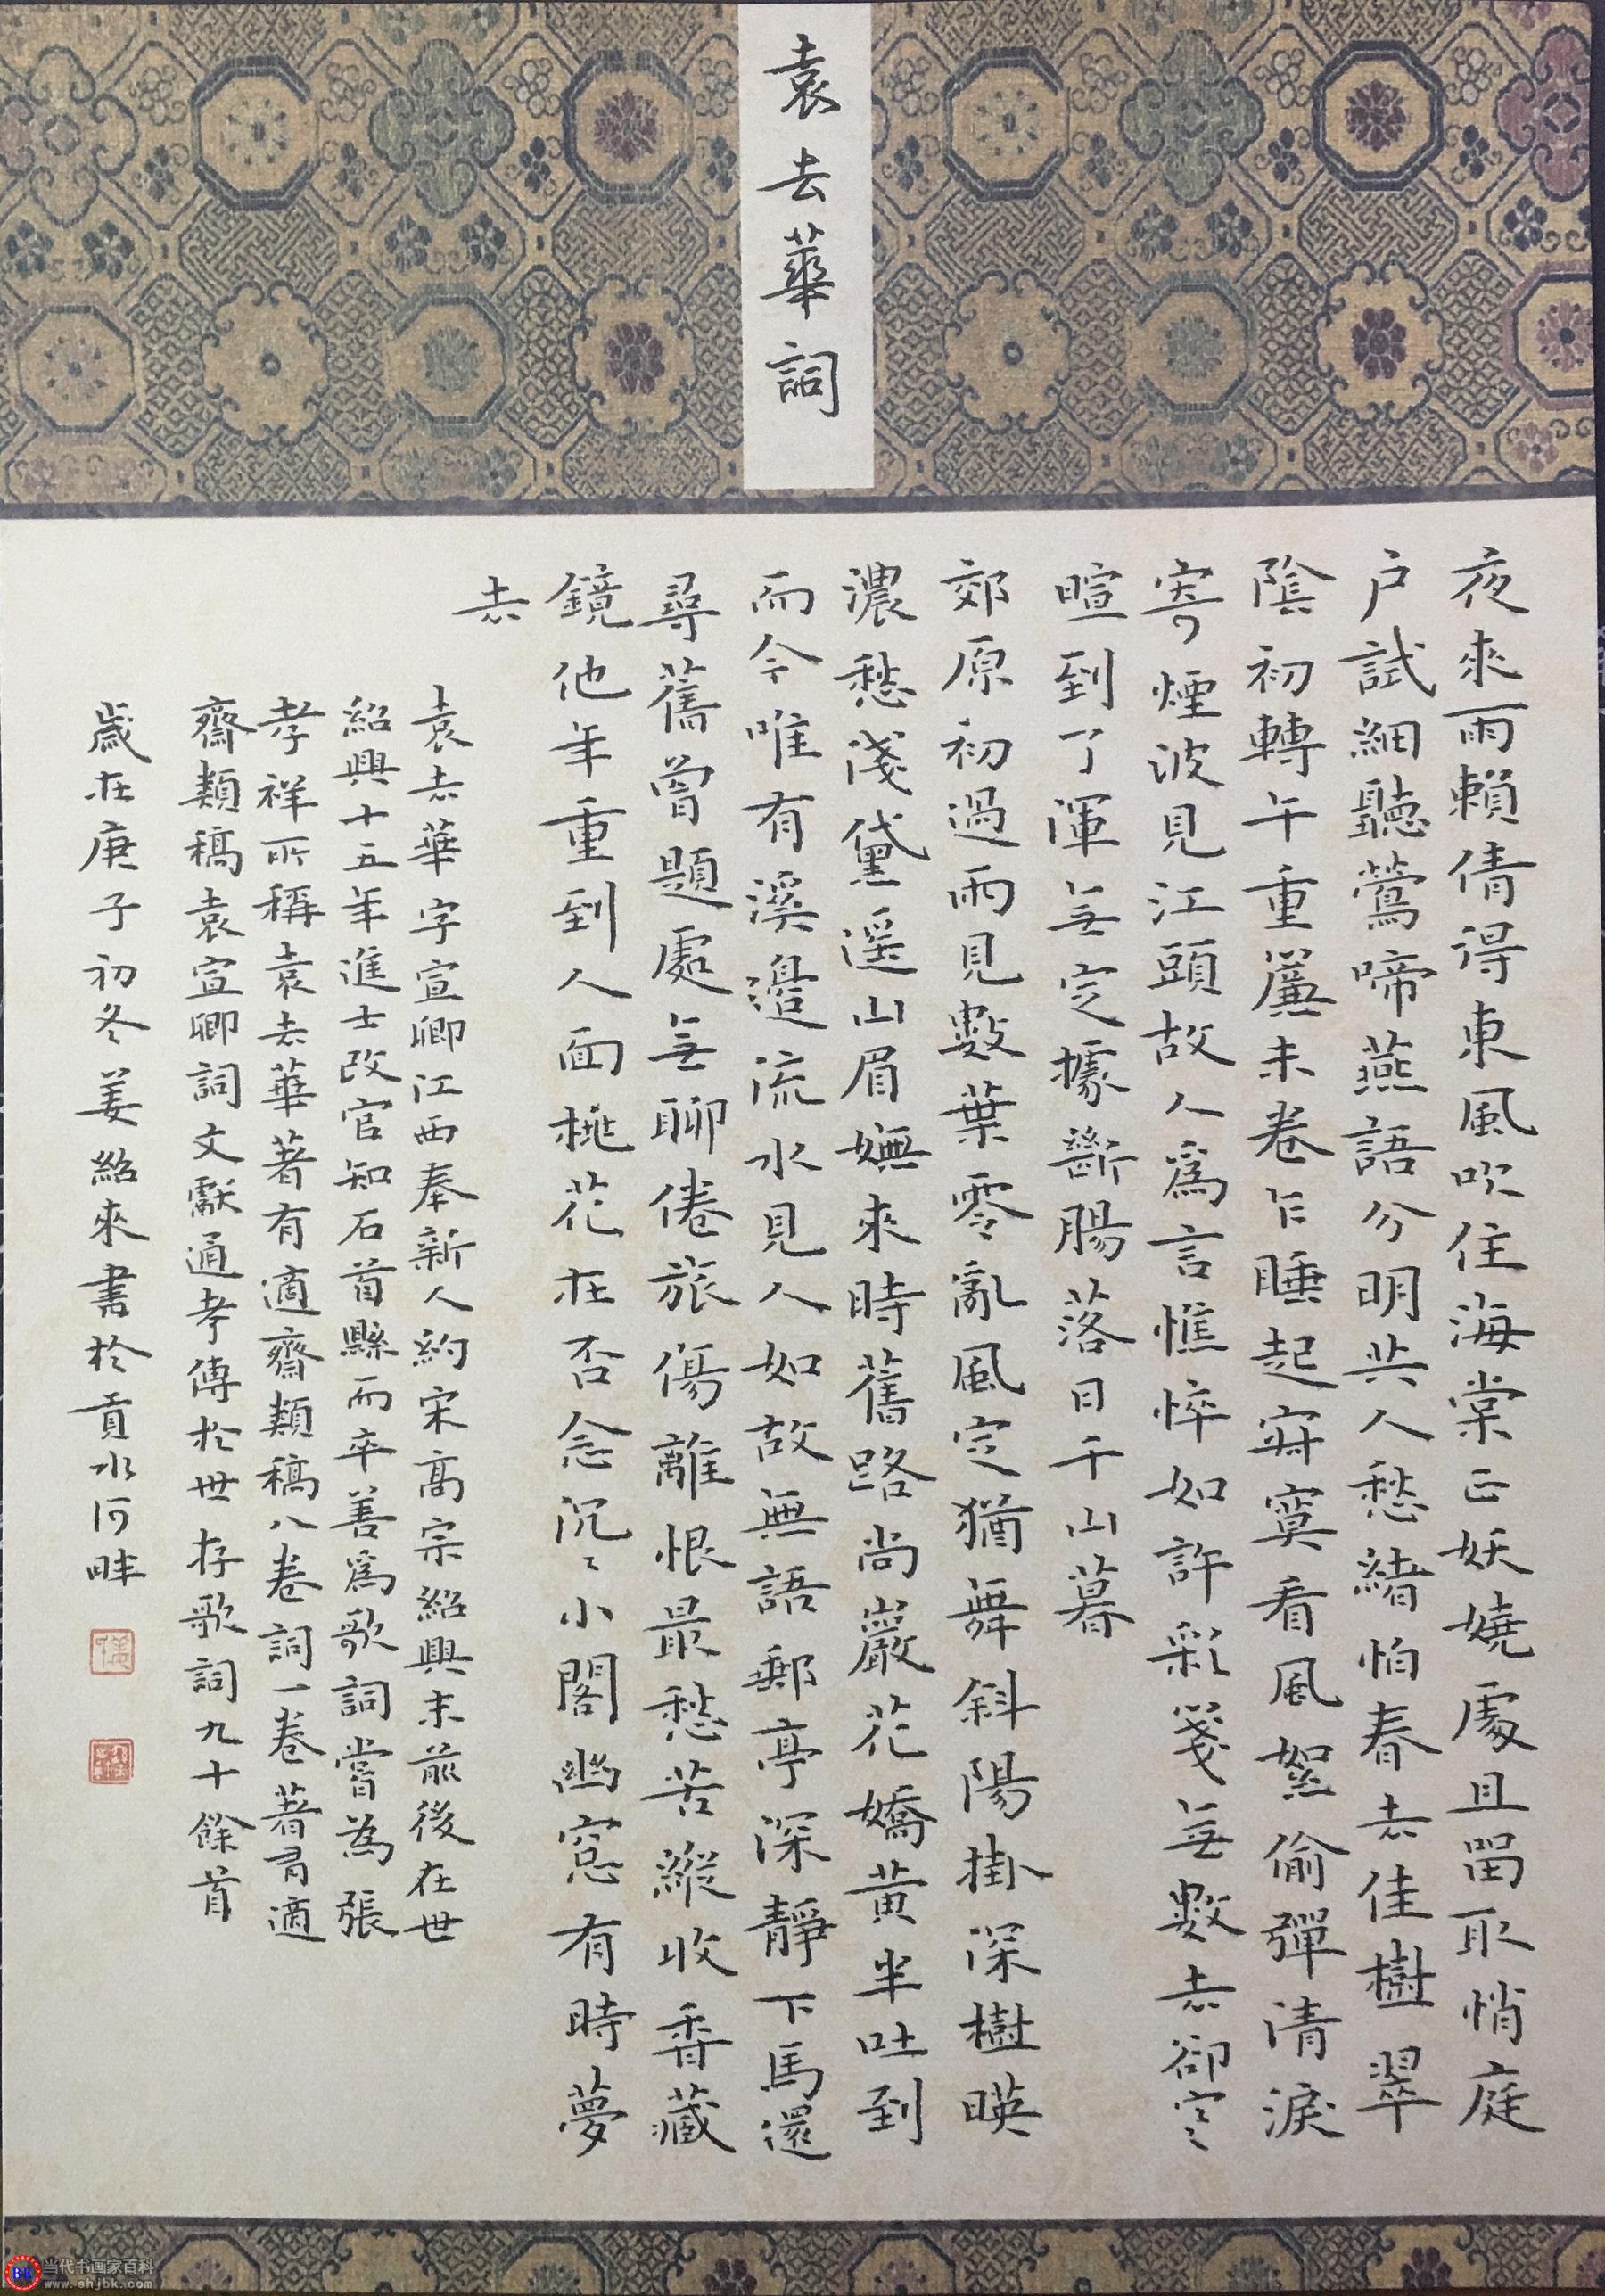 袁去華詞
夜來雨賴倩得東風吹住海棠正妖嬈處且留取悄庭
戶試細聽鶯啼燕語分明共人愁緒怕春去佳樹翠
陰初轉午重簾未卷乍睡起寂寞看風絮偷彈清淚
寄煙波見江頭故人為言憔悴如許彩箋無數去卻寒
暄到了渾無定據斷腸落日千山暮
郊原初過雨見數葉零亂風定猶舞斜陽掛深樹映
濃愁淺黛遥山眉嫵來時舊路尚巖花嬌黃半吐到
而今唯有溪邊流水見人如故無語郵亭深靜下馬還
尋舊曾題處無聊倦旅傷離恨最愁苦縱收香藏
鏡他年重到人面桃花在否念沉〻小閣幽窗有時夢
去
袁去華字宣卿江西奉新人約宋高宗紹興末前後在世
紹興十五年進士改官知石首縣而卒善為歌詞嘗為張
孝祥所稱袁去華著有適齋類稿八卷詞一卷著有適
齋類稿袁宣卿詞文獻通考傳於世存歌詞九十餘首
歲在庚子初冬姜紹來書於貢水河畔
当代书画家百科
www.shjbk.com